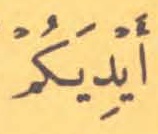 أَيْدِيَكُمْ